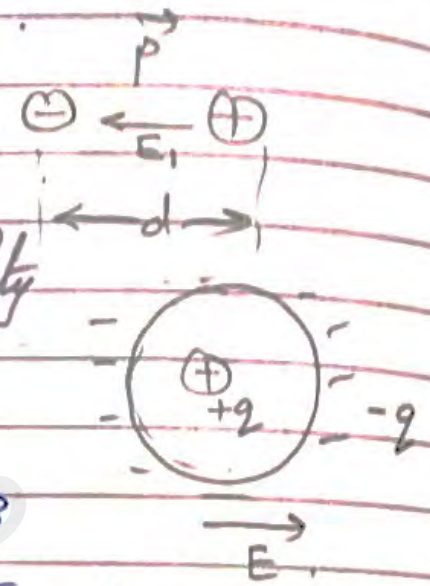 P
⊖ ← ⊕
E₁
d
ty
⊕
+q
-q
E